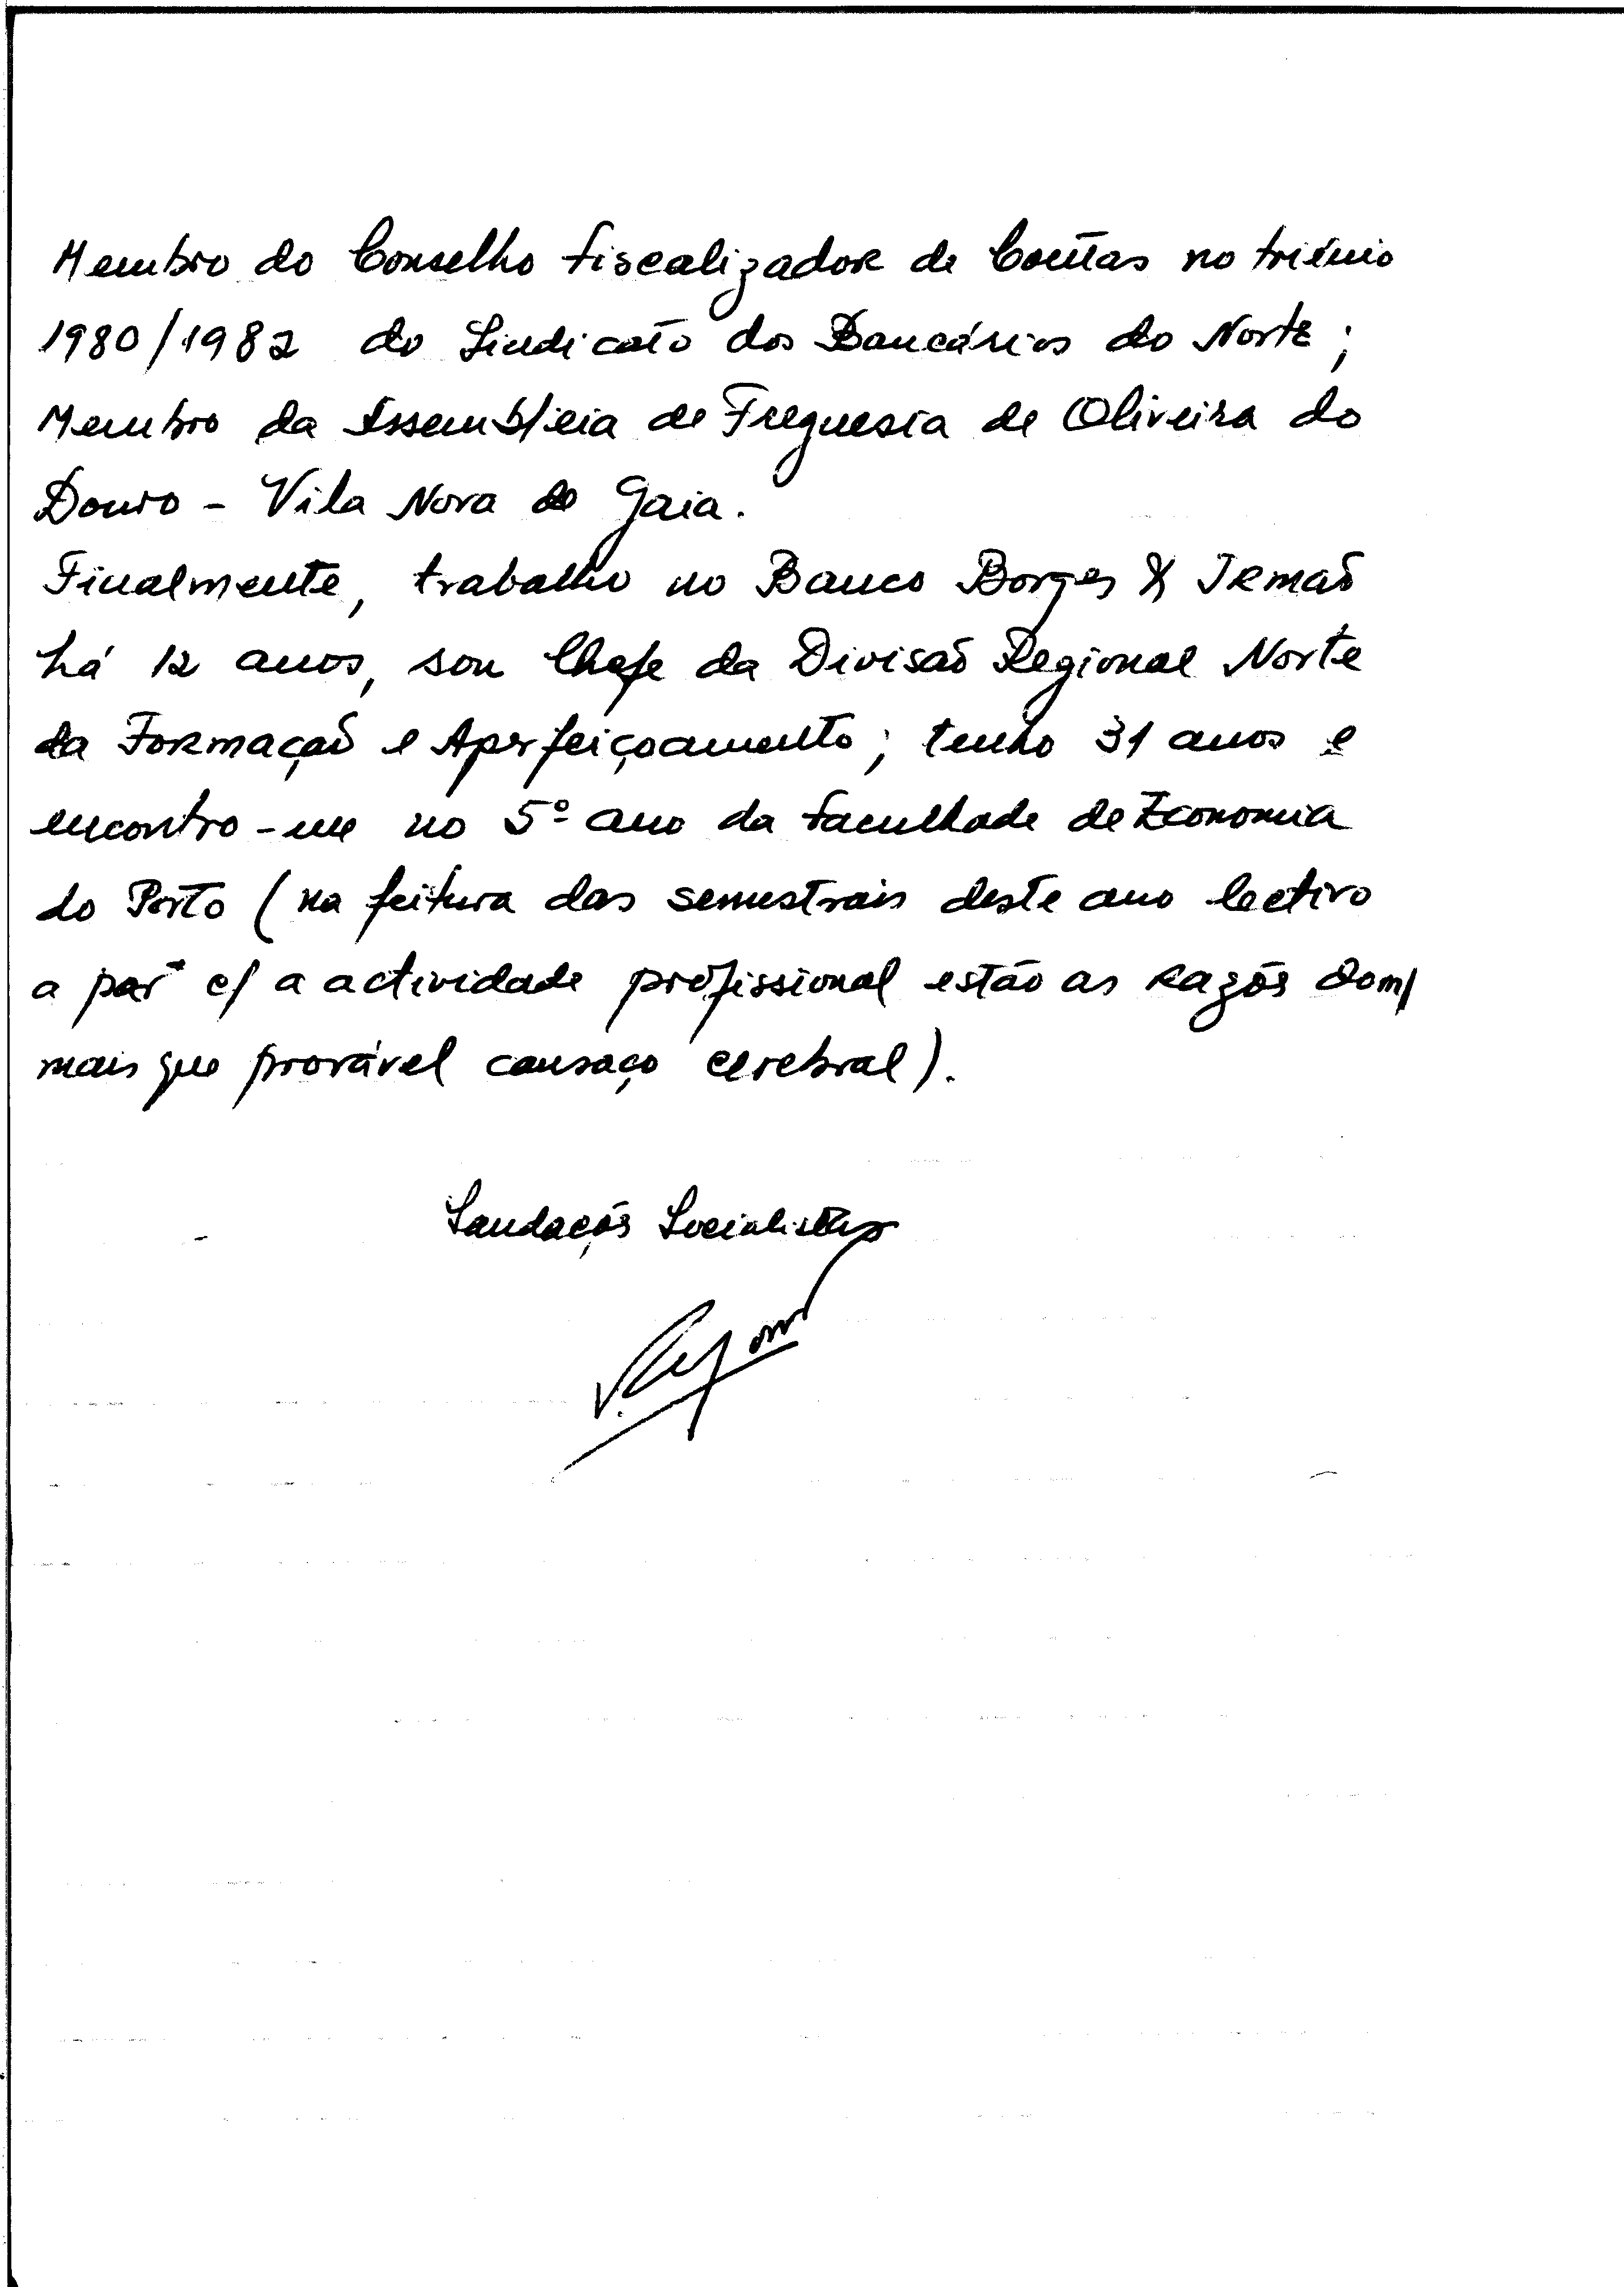 Membro do Conselho fiscalizador de Contas no triénio
1980/1982 do Sindicato dos Bancários do Norte;
Membro da Assembleia de Freguesia de Oliveira do
Douro - Vila Nova de Gaia.
Finalmente, trabalho no Banco Borges & Irmão
há 12 anos, sou Chefe da Divisão Regional Norte
da Formação e Aperfeiçoamento; tenho 31 anos e
encontro-me no 5º ano da faculdade de Economia
do Porto (na feitura das semestrais deste ano lectivo
a par c/ a actividade profissional estão as razões
mais que provável cansaço cerebral).
Saudações Socialistas